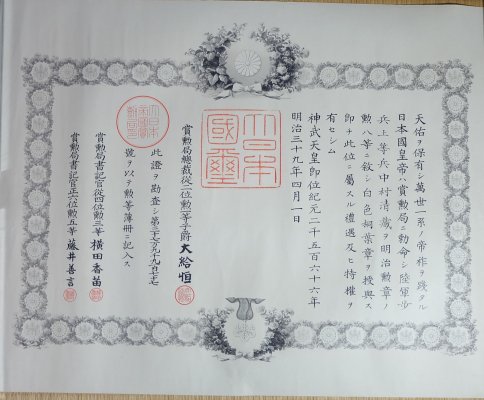 天佑ヲ保有シ萬世一系ノ帝祚ヲ踐タル
日本國皇帝ハ賞勲局ニ勅命シ陸軍歩
兵上等兵中村清藏ヲ明治勲章ノ
勲八等ニ叙シ白色桐葉章ヲ授與ス
即チ此位ニ屬スル禮遇及ヒ特權ヲ
有セシム
神武天皇即位紀元二千五百六十六年
明治三十九年四月一日
大日本
國璽
賞勲局總裁從二位勲一等子爵大給恒
此證ヲ勘査シ第三十七萬九千九百七十七
號ヲ以テ勲等簿册ニ記入ス
賞勲局書記官從四位勲三等横田香苗
賞勲局書記官正六位勲五等藤井善言